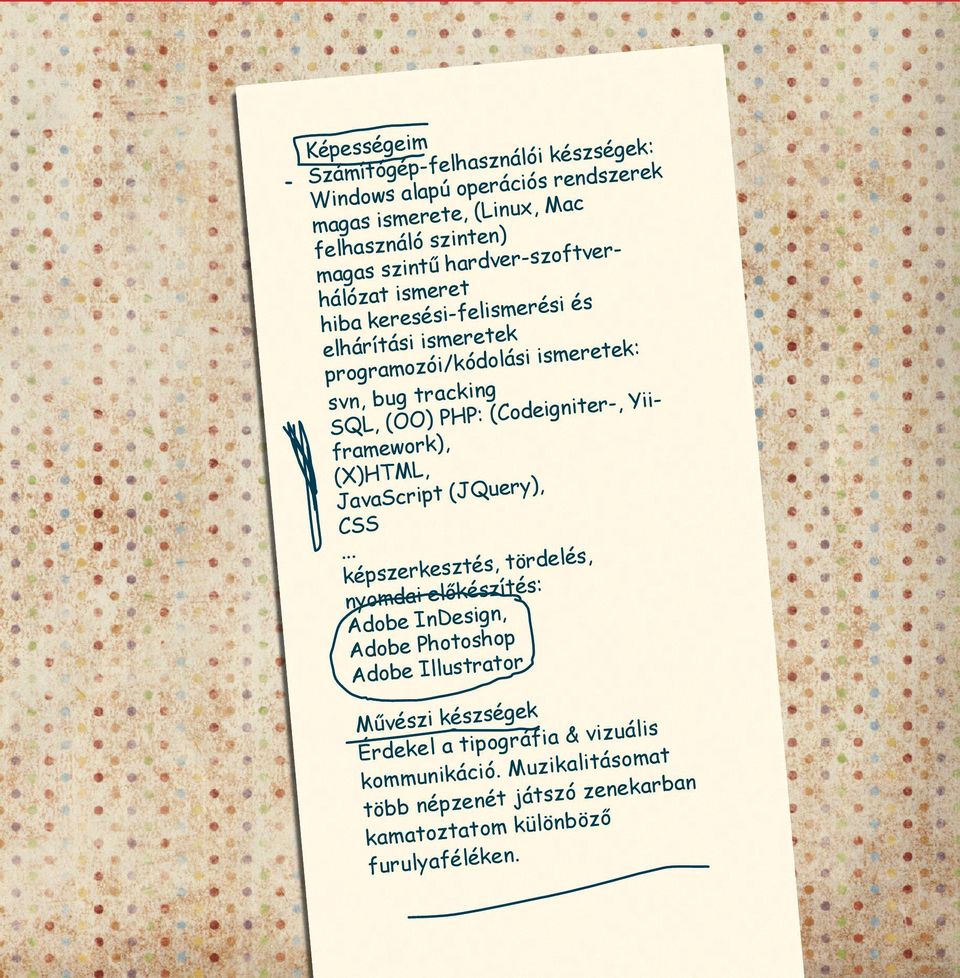 Képességeim
- Számítógép-felhasználói készségek:
Windows alapú operációs rendszerek
magas ismerete, (Linux, Mac
felhasználó szinten)
magas szintű hardver-szoftver-
hálózat ismeret
hiba keresési-felismerési és
elhárítási ismeretek
programozói/kódolási ismeretek:
svn, bug tracking
SQL, (OO) PHP: (Codeigniter-, Yii-
framework),
(X)HTML,
JavaScript (JQuery),
CSS
...
képszerkesztés, tördelés,
nyomdai előkészítés:
Adobe InDesign,
Adobe Photoshop
Adobe Illustrator
Művészi készségek
Érdekel a tipográfia & vizuális
kommunikáció. Muzikalitásomat
több népzenét játszó zenekarban
kamatoztatom különböző
furulyaféléken.